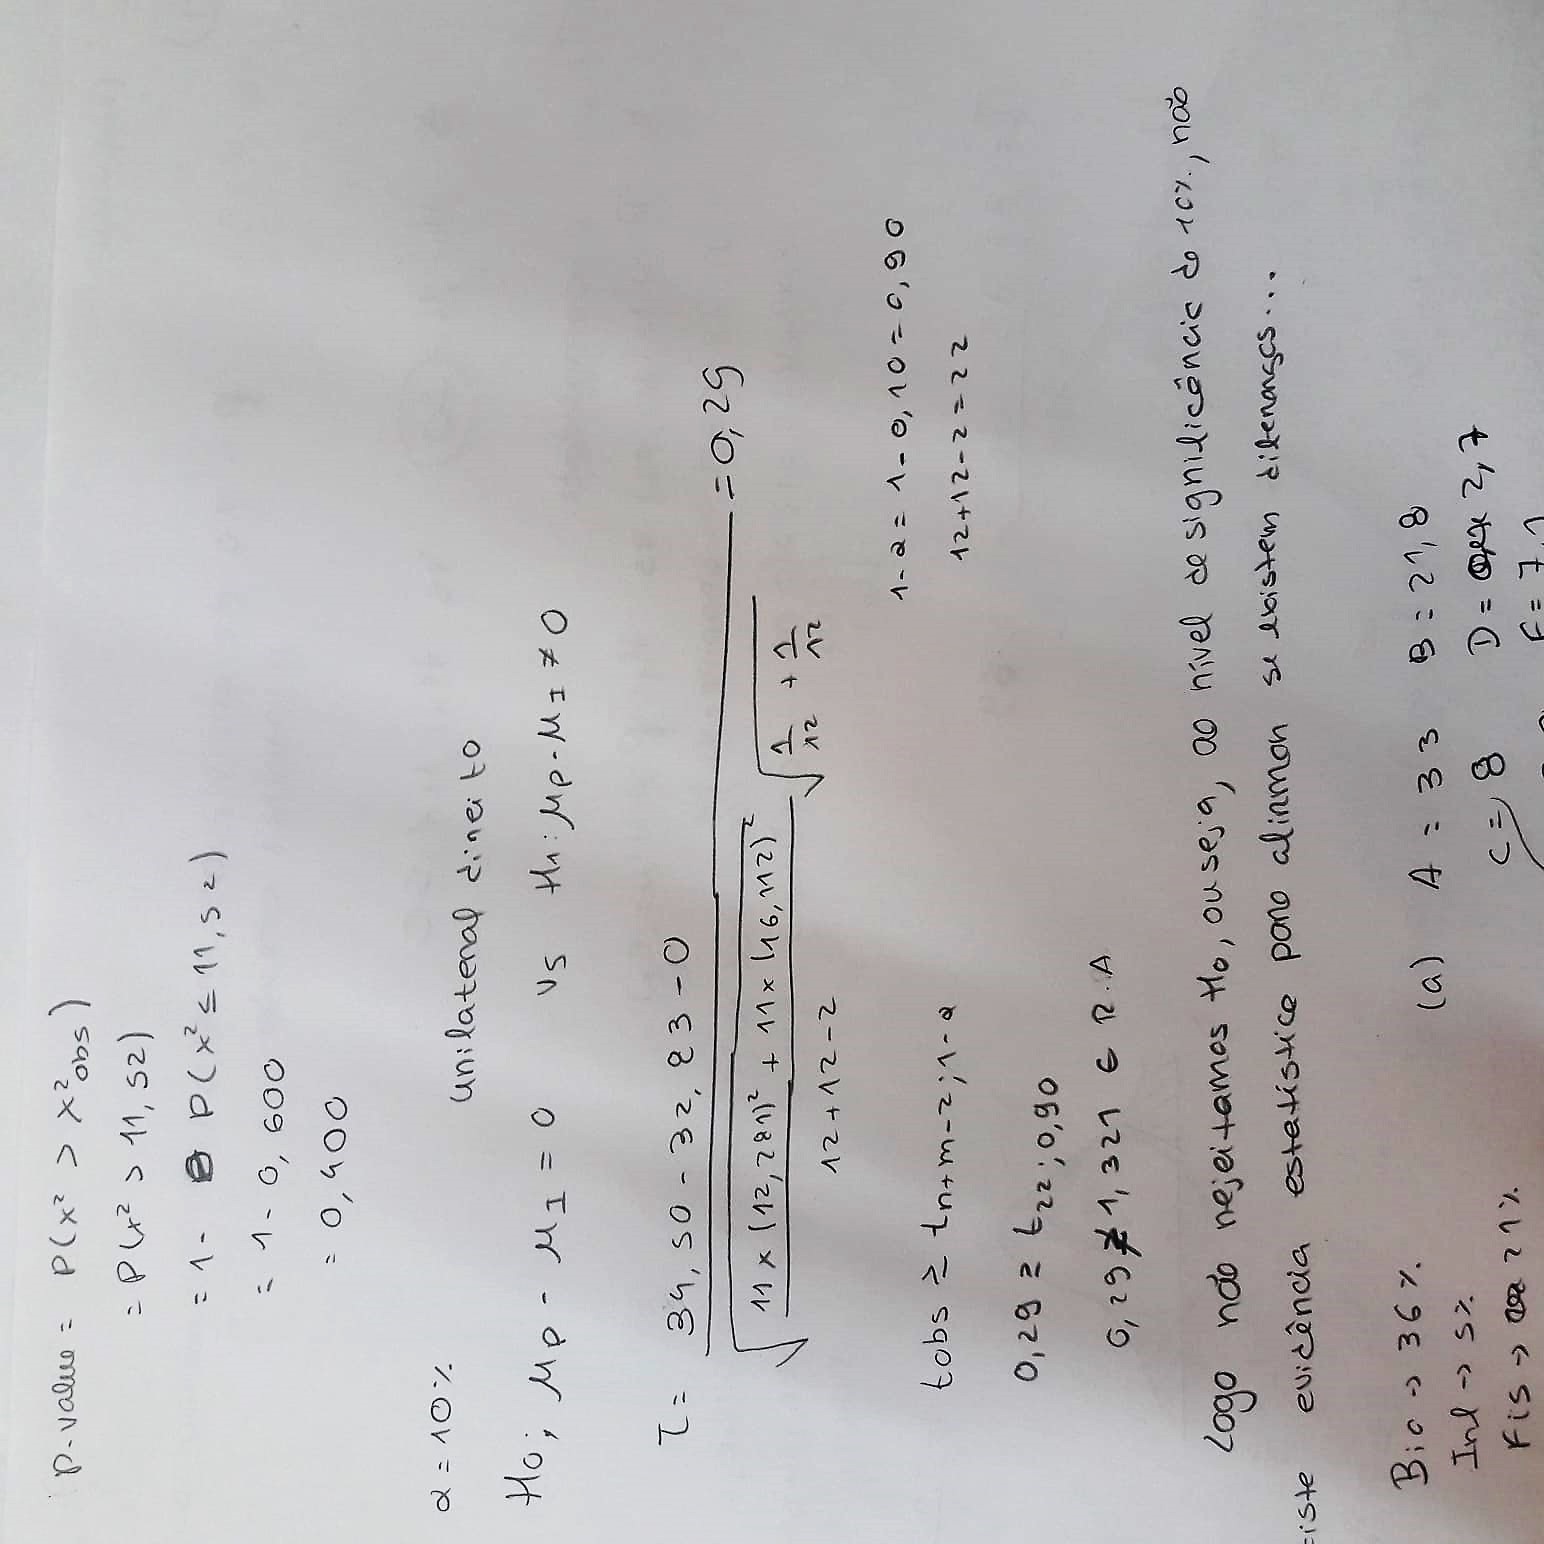 p-value = P(x² > x²obs)
= P(x² > 11,52)
= 1 - P(x² ≤ 11,52)
= 1 - 0,600
= 0,400
α = 10%
unilateral direito
H0; μP - μI = 0 vs H1: μP - μI ≠ 0
T = (34,50 - 32,83 - 0) / (√((11 × (12,281)² + 11 × (16,112)²) / (12+12-2)) √(1/12 + 1/12)) = 0,29
1-α = 1-0,10 = 0,90
tobs ≥ tn+m-2;1-α
12+12-2 = 22
0,29 ≥ t22;0,90
0,29 ≱ 1,321 ∈ R.A
Logo não rejeitamos H0, ou seja, ao nível de significência de 10%, não
iste evidência estatística para afirmar se existem diferenças...
Bio → 36%
(a) A = 33 B = 21,8
Inf → 5%
C = 8 D = 2,7
Fis → 21%
F = 7,1